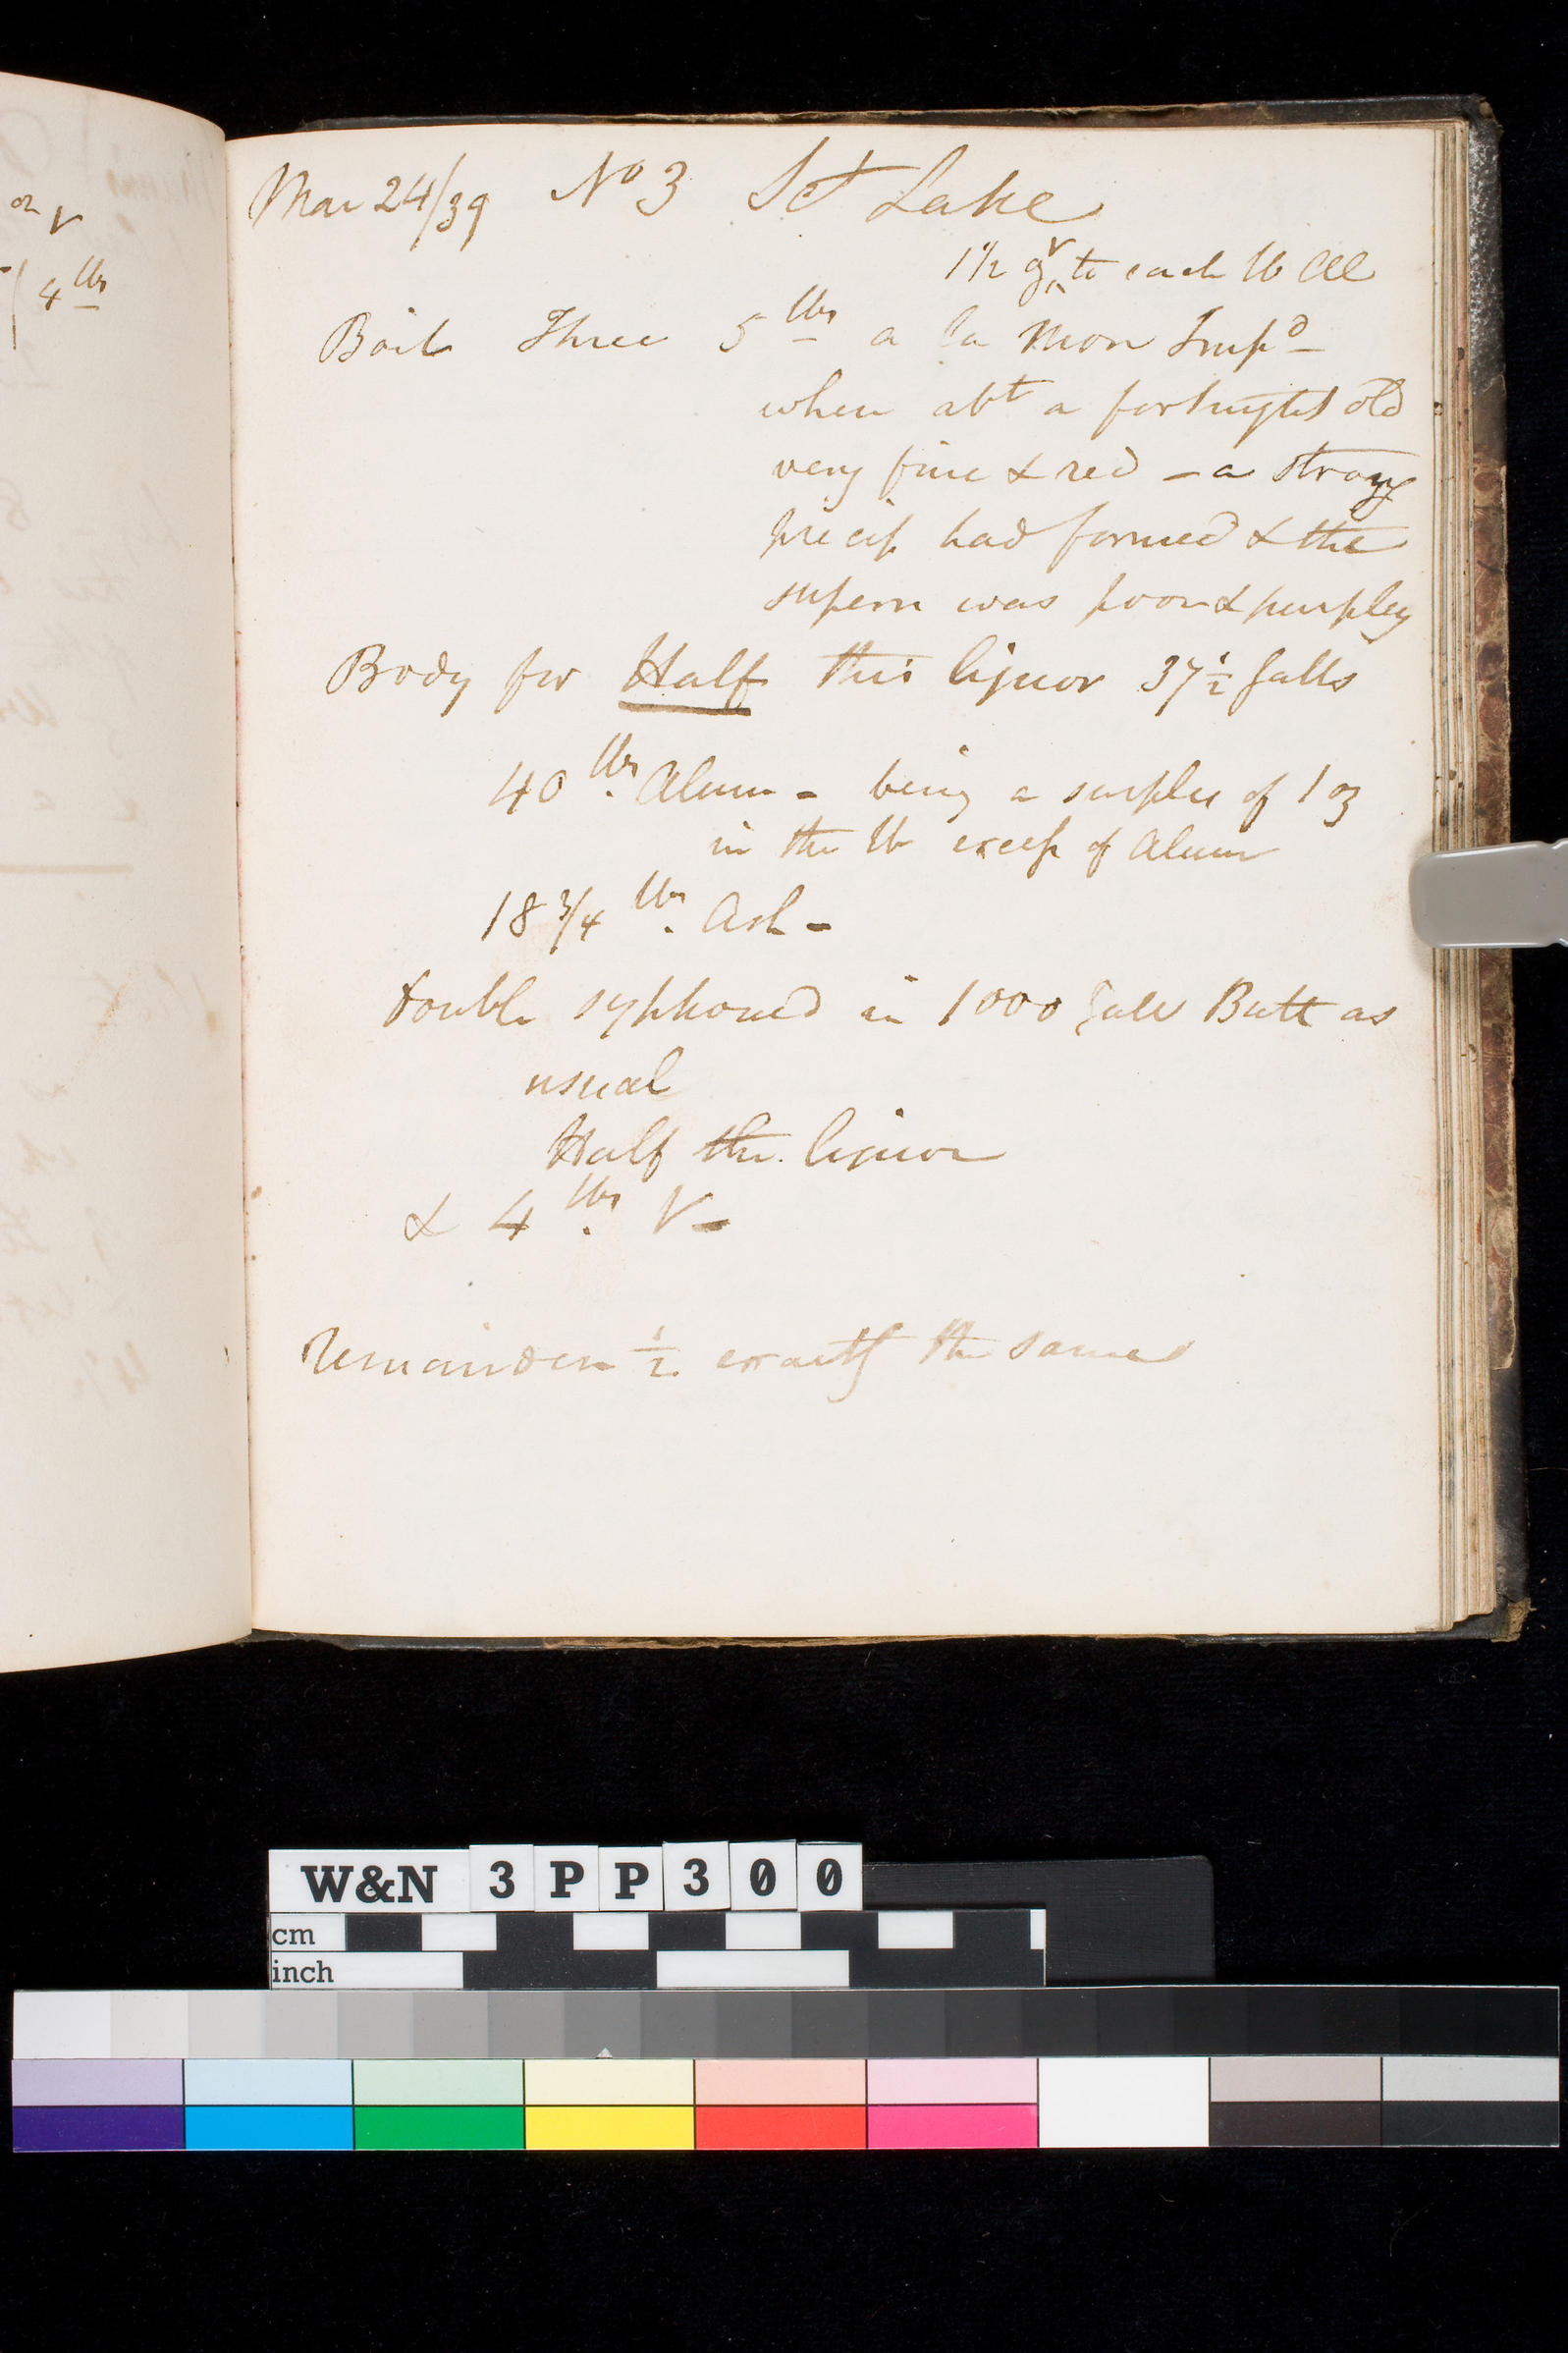 on V
4 lbs
Mar 24/39 No 3 Sct Lake
1 1/2 oz V to each lb Al
Boil Three 5 lbs a la Mon Impd
when abt a fortnight old
very fine & red - a strong
precip had formed & the
supern was poor & purpley
Body for Half this liquor 37 1/2 Galls
40 lbs. Alum - being a surplus of 1 oz
in the lb excess of Alum
18 3/4 lbs. Ash -
double syphoned in 1000 Gall Butt as
usual
Half the liquor
& 4 lbs. V -
Remainder 1/2 exactly the same
W&N 3PP300
cm
inch